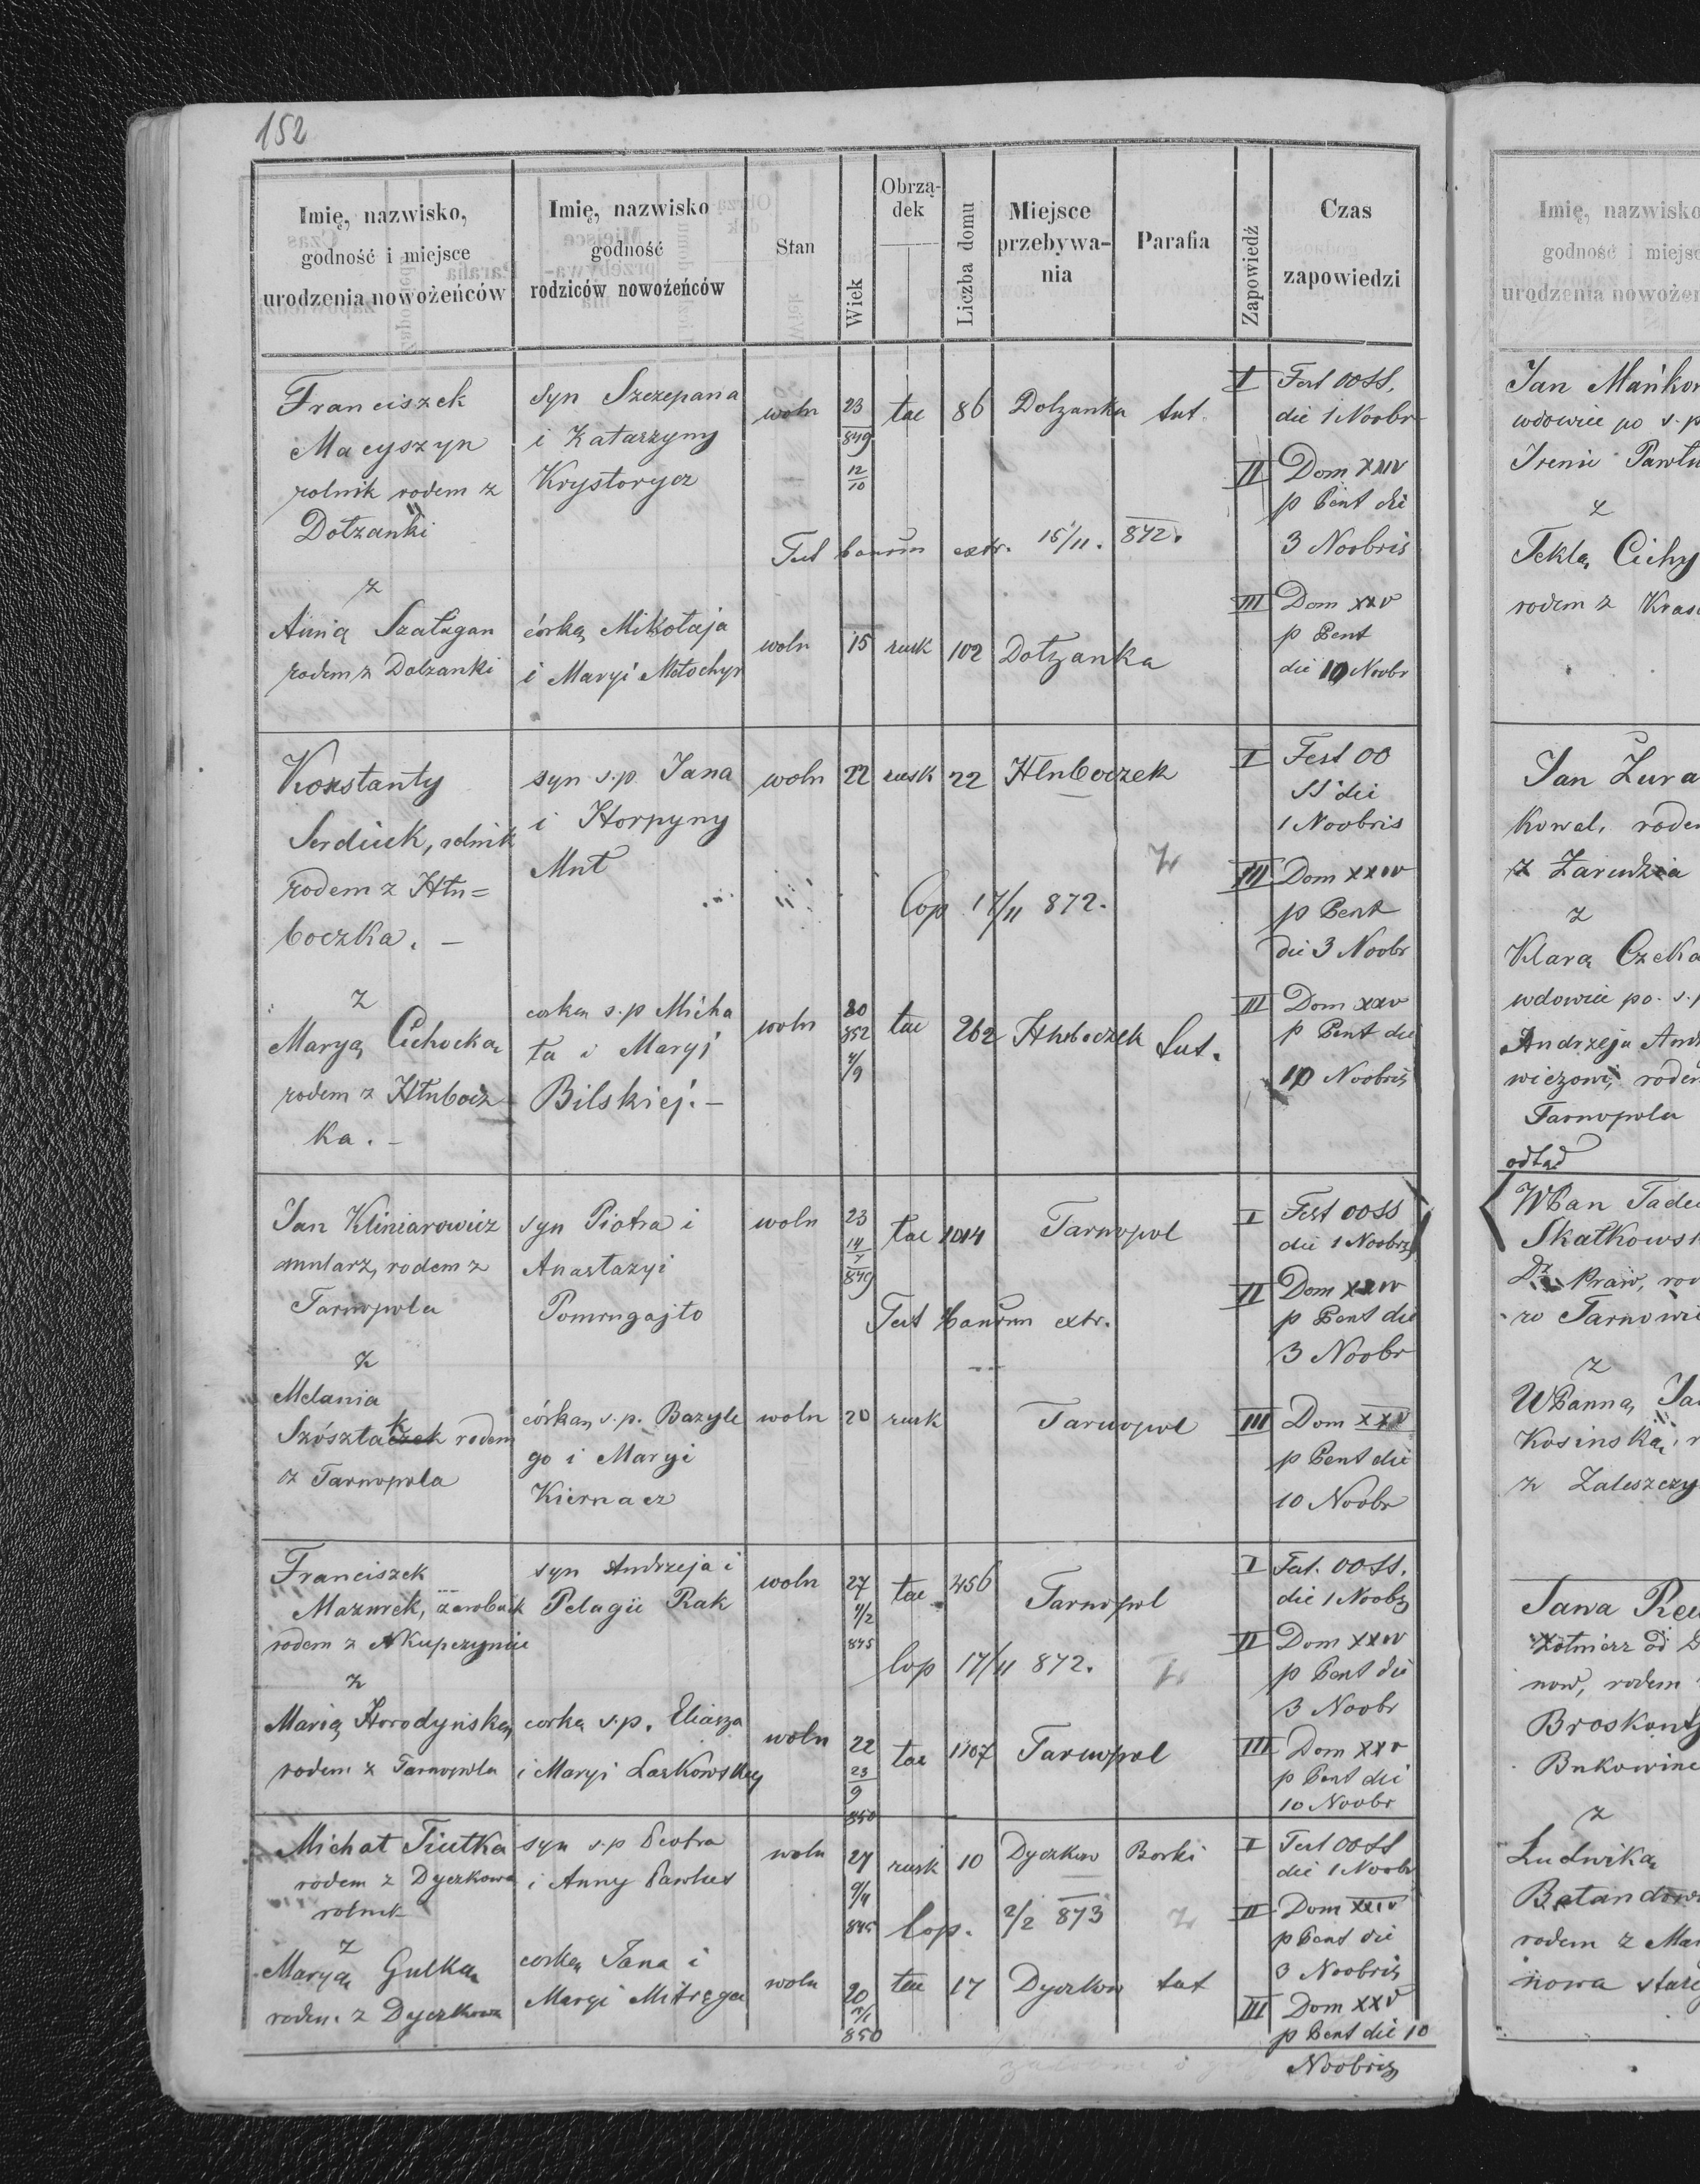 152
Imię, nazwisko,
godność i miejsce
urodzenia nowożeńców
Imię, nazwisko
godność
rodziców nowożeńców
Stan
Wiek
Obrzą-
dek
Liczba domu
Miejsce
przebywa-
nia
Parafia
Zapowiedź
Czas
zapowiedzi
Franciszek
Macyszyn
rolnik rodem z
Dołzanki
syn Szczepana
i Katarzyny
Krystorycz
woln
23
849
12/10
łac
86
Dolzanka
tut.
I
Fest OOSS,
die 1 Noobr
II
Dom XXIV
p Pent die
3 Noobris
Test bannm extr. 15/11. 872.
z
Anną Szałagan
rodem z Dolzanki
córką Mikołaja
i Maryi Mołochyr
woln
15
rusk
102
Dołzanka
III
Dom XXV
p Pent
die 10 Noobr
Konstanty
Serdiuk, rolnik
rodem z Hłu=
boczka. -
syn s.p. Jana
i Horpyny
Mut
woln
22
rusk
22
Hłuboczek
I
Fest OO
SS die
1 Noobris
Cop 17/11 872.
III
Dom XXIV
p Pent
die 3 Noobr
z
Maryą Cichocką
rodem z Hłubocz
ka. -
corką s.p Micha
ła i Maryi
Bilskiej. -
woln
20
852
4/9
łac
262
Hłuboczek
tut.
III
Dom XXV
p Pent die
10 Noobris
Jan Kliniarowicz
mularz, rodem z
Tarnopola
syn Piotra i
Anastazyi
Pomrugajło
woln
23
14/7
849
łac
1014
Tarnopol
I
Fest OOSS
die 1 Noobris
Test bannm extr.
II
Dom XXIV
p Pent die
3 Noobr
z
Melania
rodem
z Tarnopola
córką s.p. Bazyle
go i Maryi
Kiernacz
woln
20
rusk
Tarnopol
III
Dom XXV
p Pent die
10 Noobr
Franciszek
Mazurek, zarobnik
rodem z Kupczyniec
syn Andrzeja i
Pelagii Rak
woln
27
4/2
845
łac
456
Tarnopol
I
Fest. OOSS.
die 1 Noobris
Cop 17/11 872.
II
Dom XXIV
p Pent die
3 Noobr
z
Marią Horodyńską
rodem z Tarnopola
corką s.p. Eliasza
i Maryi Laskowskiej
woln
22
23/9
850
łac
1107
Tarnopol
III
Dom XXV
p Pent die
10 Noobr
Michał Tiutka
rodem z Dyczkowa
rolnik
syn s.p Piotra
i Anny Pawlus
woln
27
9/4
845
rusk
10
Dyczkow
Borki
I
Fest OOSS
die 1 Noobr
Cop. 2/2 873
II
Dom XXIV
p Pent die
3 Noobris
z
Maryą Gulką
rodem z Dyczkowa
corką Jana i
Maryi Mitręga
woln
20
850
łac
17
Dyczkow
tut
III
Dom XXV
p Pent die 10
Noobris
Imię, nazwisko
godność i miejsc
urodzenia nowożeń
Jan Mańkow
wdowiec po s.p
Irenie Pawłu
z
Teklą Cichy
rodem z Kras
Jan Żura
Kowal, rodem
z Zarudzia
z
Klarą Czeka
wdowie po s.p
Andrzeju And
wiczowi, rodem
Tarnopola
odtąd
WPan Tade
Skałkowsk
Dr. Praw, rod
z
WPanną Ja
Kosinską, r
z Zaleszczy
Jawa Reu
żołnierz od D
now, rodem
Broskoutz
Bukowinie
z
Ludwiką
Bałandow
rodem z Mar
nowa stare